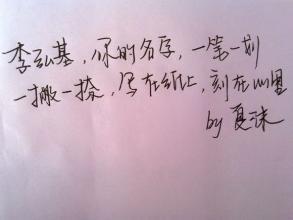 李弘基，你的名字，一笔一划
一撇一捺，写在纸上，刻在心里
by 夏沫